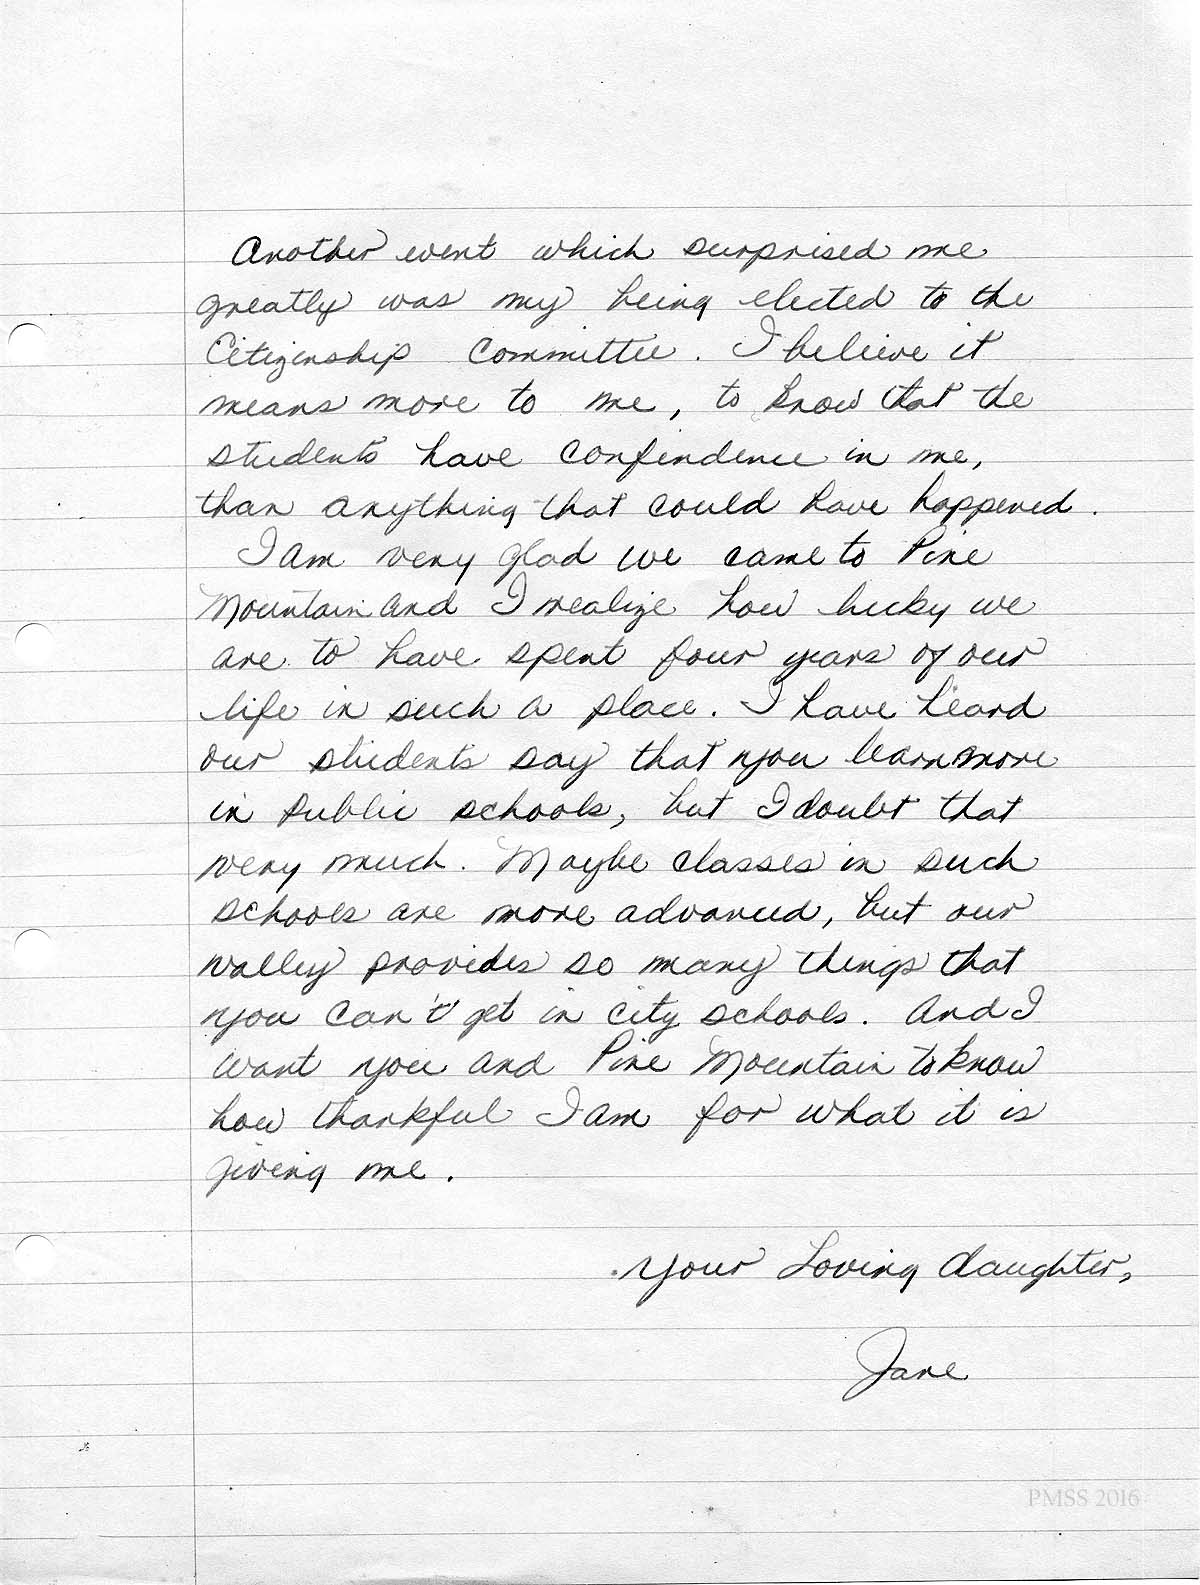 Another event which surprised me
greatly was my being elected to the
Citizenship Committee. I believe it
means more to me, to know that the
students have confindence in me,
than anything that could have happened.
I am very glad we came to Pine
Mountain and I realize how lucky we
are to have spent four years of our
life in such a place. I have heard
our students say that you learn more
in public schools, but I doubt that
very much. Maybe classes in such
schools are more advanced, but our
valley provides so many things that
you can't get in city schools. And I
want you and Pine Mountain to know
how thankful I am for what it is
giving me.
Your Loving daughter,
Jane
PMSS 2016